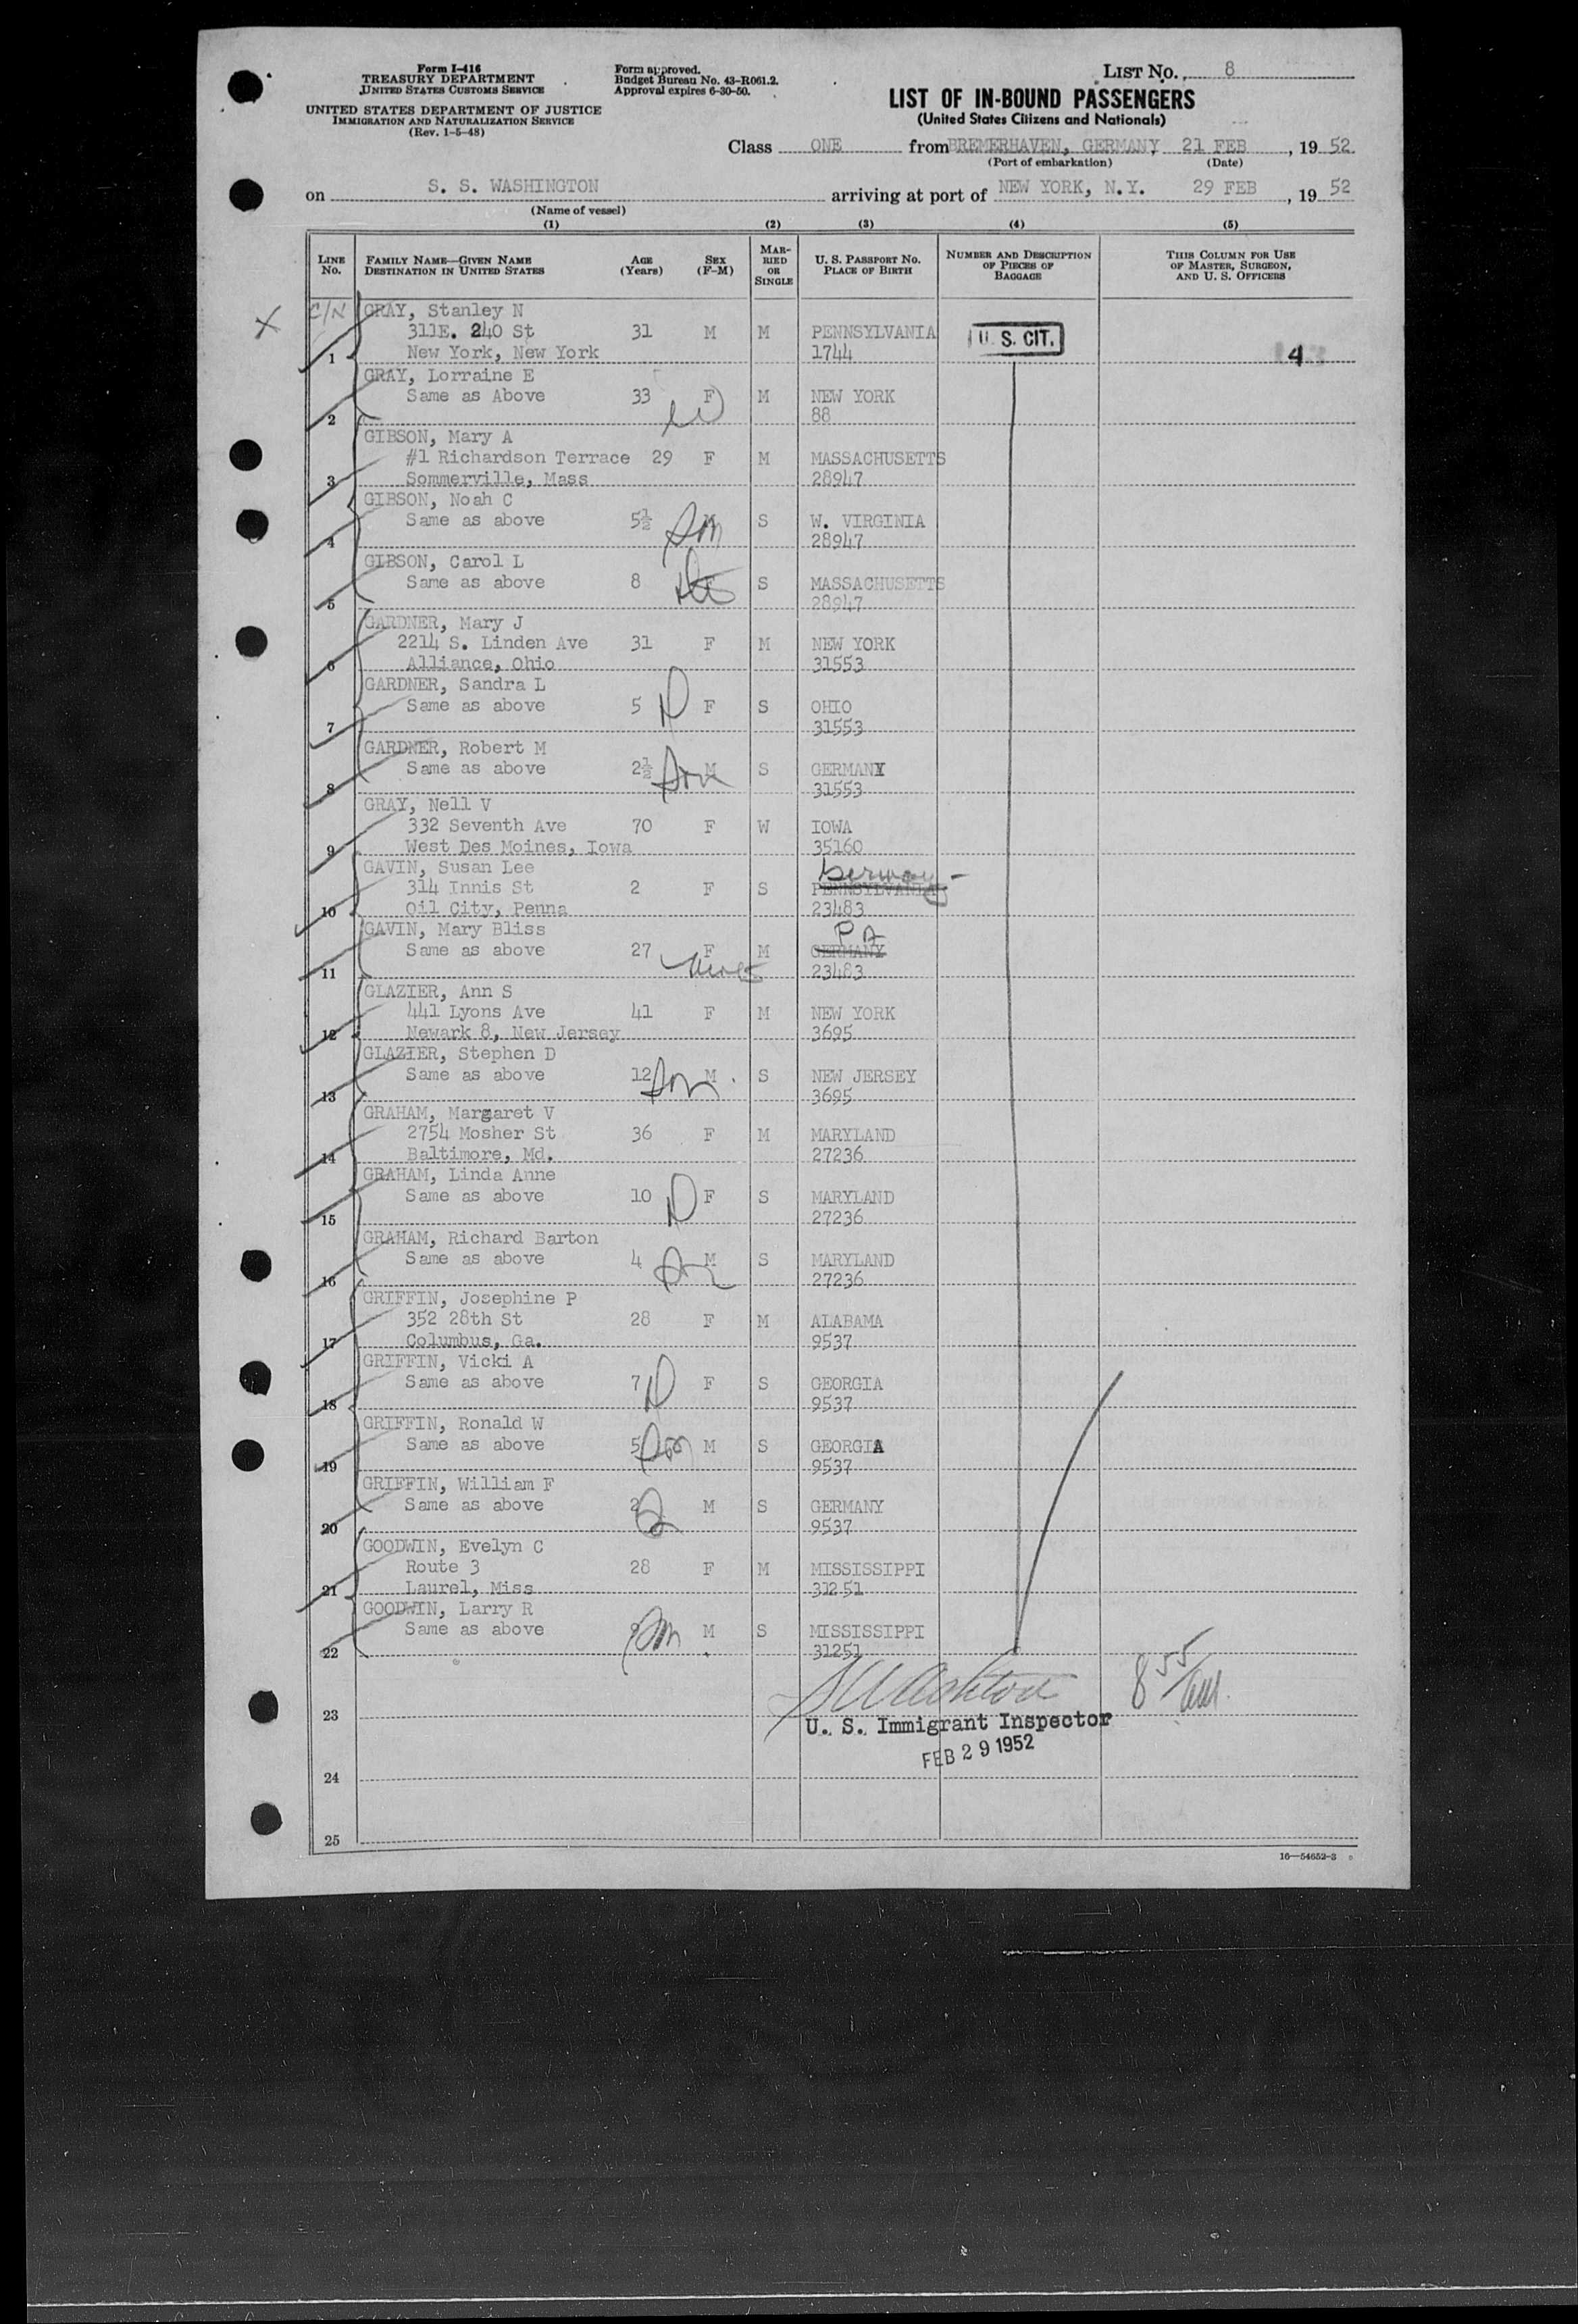 Form I-416
TREASURY DEPARTMENT
UNITED STATES CUSTOMS SERVICE
UNITED STATES DEPARTMENT OF JUSTICE
IMMIGRATION AND NATURALIZATION SERVICE
(Rev. 1-5-48)
Form approved.
Budget Bureau No. 43-R061.2.
Approval expires 6-30-50.
LIST NO. 8
LIST OF IN-BOUND PASSENGERS
(United States Citizens and Nationals)
Class ONE from BREMERHAVEN, GERMANY 21 FEB, 19 52
(Port of embarkation) (Date)
on S. S. WASHINGTON arriving at port of NEW YORK, N.Y. 29 FEB, 19 52
(Name of vessel)
(1) (2) (3) (4) (5)
LINE NO. FAMILY NAME—GIVEN NAME DESTINATION IN UNITED STATES AGE (Years) SEX (F-M) MARRIED OR SINGLE U. S. PASSPORT NO. PLACE OF BIRTH NUMBER AND DESCRIPTION OF PIECES OF BAGGAGE THIS COLUMN FOR USE OF MASTER, SURGEON, AND U. S. OFFICERS
X C/N GRAY, Stanley N
311E. 240 St 31 M M PENNSYLVANIA U. S. CIT.
1 New York, New York 1744 4
GRAY, Lorraine E
Same as Above 33 F M NEW YORK
2 88
GIBSON, Mary A
#1 Richardson Terrace 29 F M MASSACHUSETTS
3 Sommerville, Mass 28947
GIBSON, Noah C
Same as above 5½ Son S W. VIRGINIA
4 28947
GIBSON, Carol L
Same as above 8 F S MASSACHUSETTS
5 28947
GARDNER, Mary J
2214 S. Linden Ave 31 F M NEW YORK
6 Alliance, Ohio 31553
GARDNER, Sandra L
Same as above 5 D F S OHIO
7 31553
GARDNER, Robert M
Same as above 2½ Son M S GERMANY
8 31553
GRAY, Nell V
332 Seventh Ave 70 F W IOWA
9 West Des Moines, Iowa 35160
GAVIN, Susan Lee Germany
314 Innis St 2 F S PENNSYLVANIA
10 Oil City, Penna 23483
GAVIN, Mary Bliss PA
Same as above 27 F M GERMANY
11 23483
GLAZIER, Ann S
441 Lyons Ave 41 F M NEW YORK
12 Newark 8, New Jersey 3695
GLAZIER, Stephen D
Same as above 12 Son M S NEW JERSEY
13 3695
GRAHAM, Margaret V
2754 Mosher St 36 F M MARYLAND
14 Baltimore, Md. 27236
GRAHAM, Linda Anne
Same as above 10 D F S MARYLAND
15 27236
GRAHAM, Richard Barton
Same as above 4 Son M S MARYLAND
16 27236
GRIFFIN, Josephine P
352 28th St 28 F M ALABAMA
17 Columbus, Ga. 9537
GRIFFIN, Vicki A
Same as above 7 D F S GEORGIA
18 9537
GRIFFIN, Ronald W
Same as above 5 Son M S GEORGIA
19 9537
GRIFFIN, William F
Same as above 2 M S GERMANY
20 9537
GOODWIN, Evelyn C
Route 3 28 F M MISSISSIPPI
21 Laurel, Miss 31251
GOODWIN, Larry R
Same as above Son M S MISSISSIPPI
22 31251
8 55/am
23 U. S. Immigrant Inspector
FEB 29 1952
24
25
16—54652-3